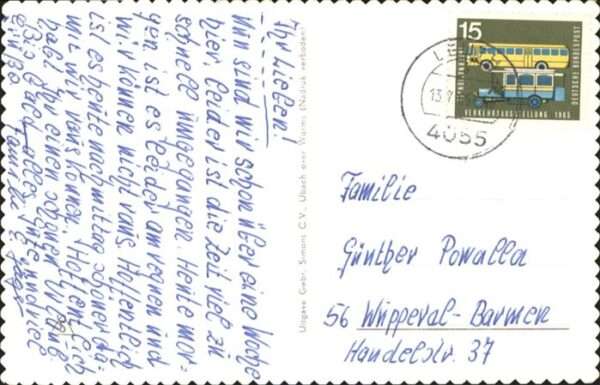 Ihr Lieben!
Nun sind wir schon über eine Woche
hier. Leider ist die Zeit viel zu
schnell umgegangen. Heute mor-
gen ist es leider am regnen und
wir können nicht raus. Hoffentlich
ist es heute nachmittag schöner da-
mit wir raus können. Hoffentlich
habt Ihr einen schönen Urlaub.
Bis dahin alles Gute und viele
Grüße
Familie
Günther Powalla
56 Wupperal-Barmen
Handelstr. 37
15
DEUTSCHE BUNDESPOST
VERKEHRSAUSSTELLUNG 1965
4055
Uitgave Gebr. Simons C.V., Ubach over Worms (Nadruk verboden)